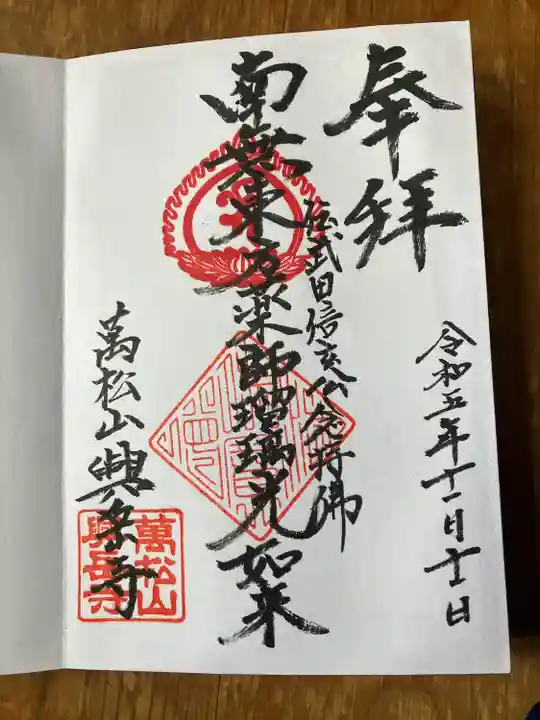 奉拝
令和五年十一月十二日
伝武田信玄公念持佛
南無東方薬師瑠璃光如来
萬松山
萬松山